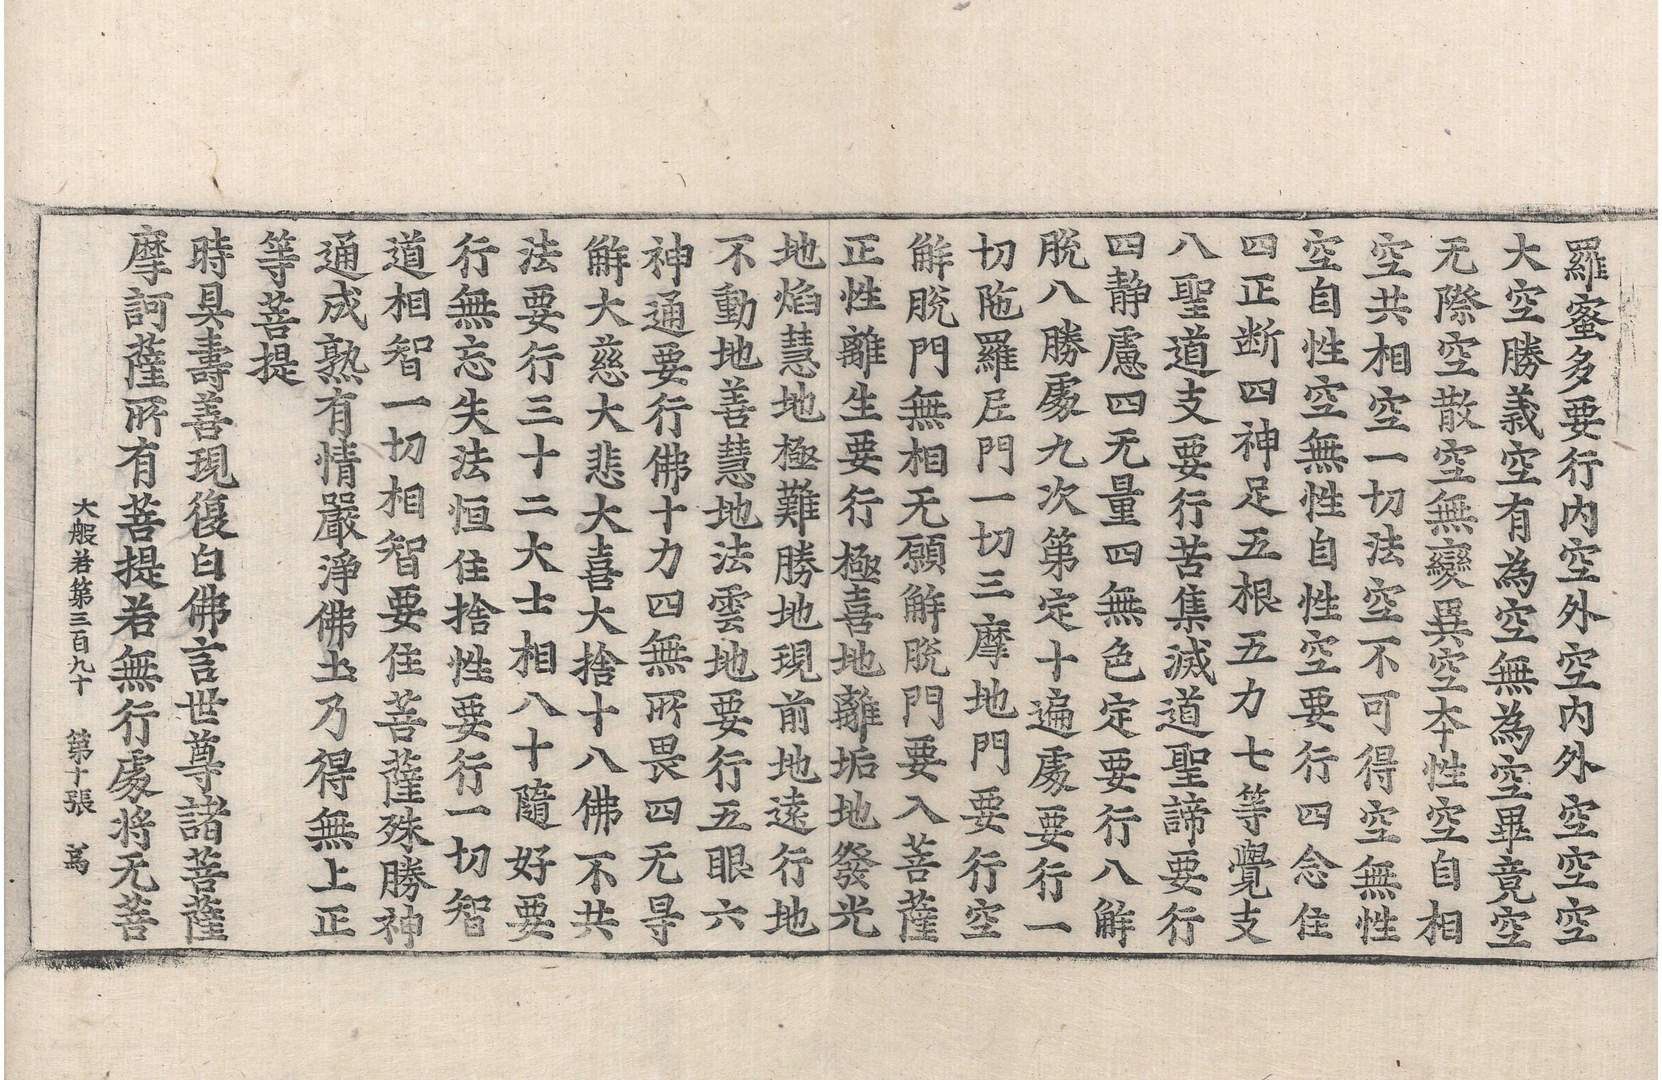 羅蜜多要行内空外空内外空空空
大空勝義空有為空無為空畢竟空
无際空散空無變異空本性空自相
空共相空一切法空不可得空無性
空自性空無性自性空要行四念住
四正断四神足五根五力七等覺支
八聖道支要行苦集滅道聖諦要行
四静慮四无量四無色定要行八解
脫八勝處九次第定十遍處要行一
切陁羅尼門一切三摩地門要行空
解脫門無相无願解脫門要入菩薩
正性離生要行極喜地離垢地發光
地焰慧地極難勝地現前地遠行地
不動地善慧地法雲地要行五眼六
神通要行佛十力四無所畏四无㝵
解大慈大悲大喜大捨十八佛不共
法要行三十二大士相八十隨好要
行無忘失法恒住捨性要行一切智
道相智一切相智要住菩薩殊勝神
通成熟有情嚴淨佛土乃得無上正
等菩提
時具壽善現復白佛言世尊諸菩薩
摩訶薩所有菩提若無行處將无菩
大般若第三百九十　第十張　萬